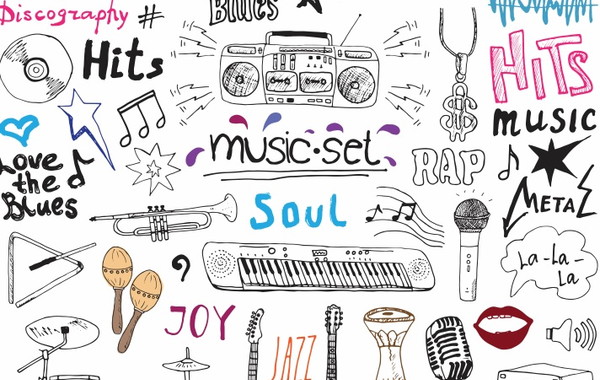 Discography #
Blues
Hits
HiTS
music
music·set
RAP
Love
the
Blues
Soul
METAL
La-La-
La
JOY
JAZZ